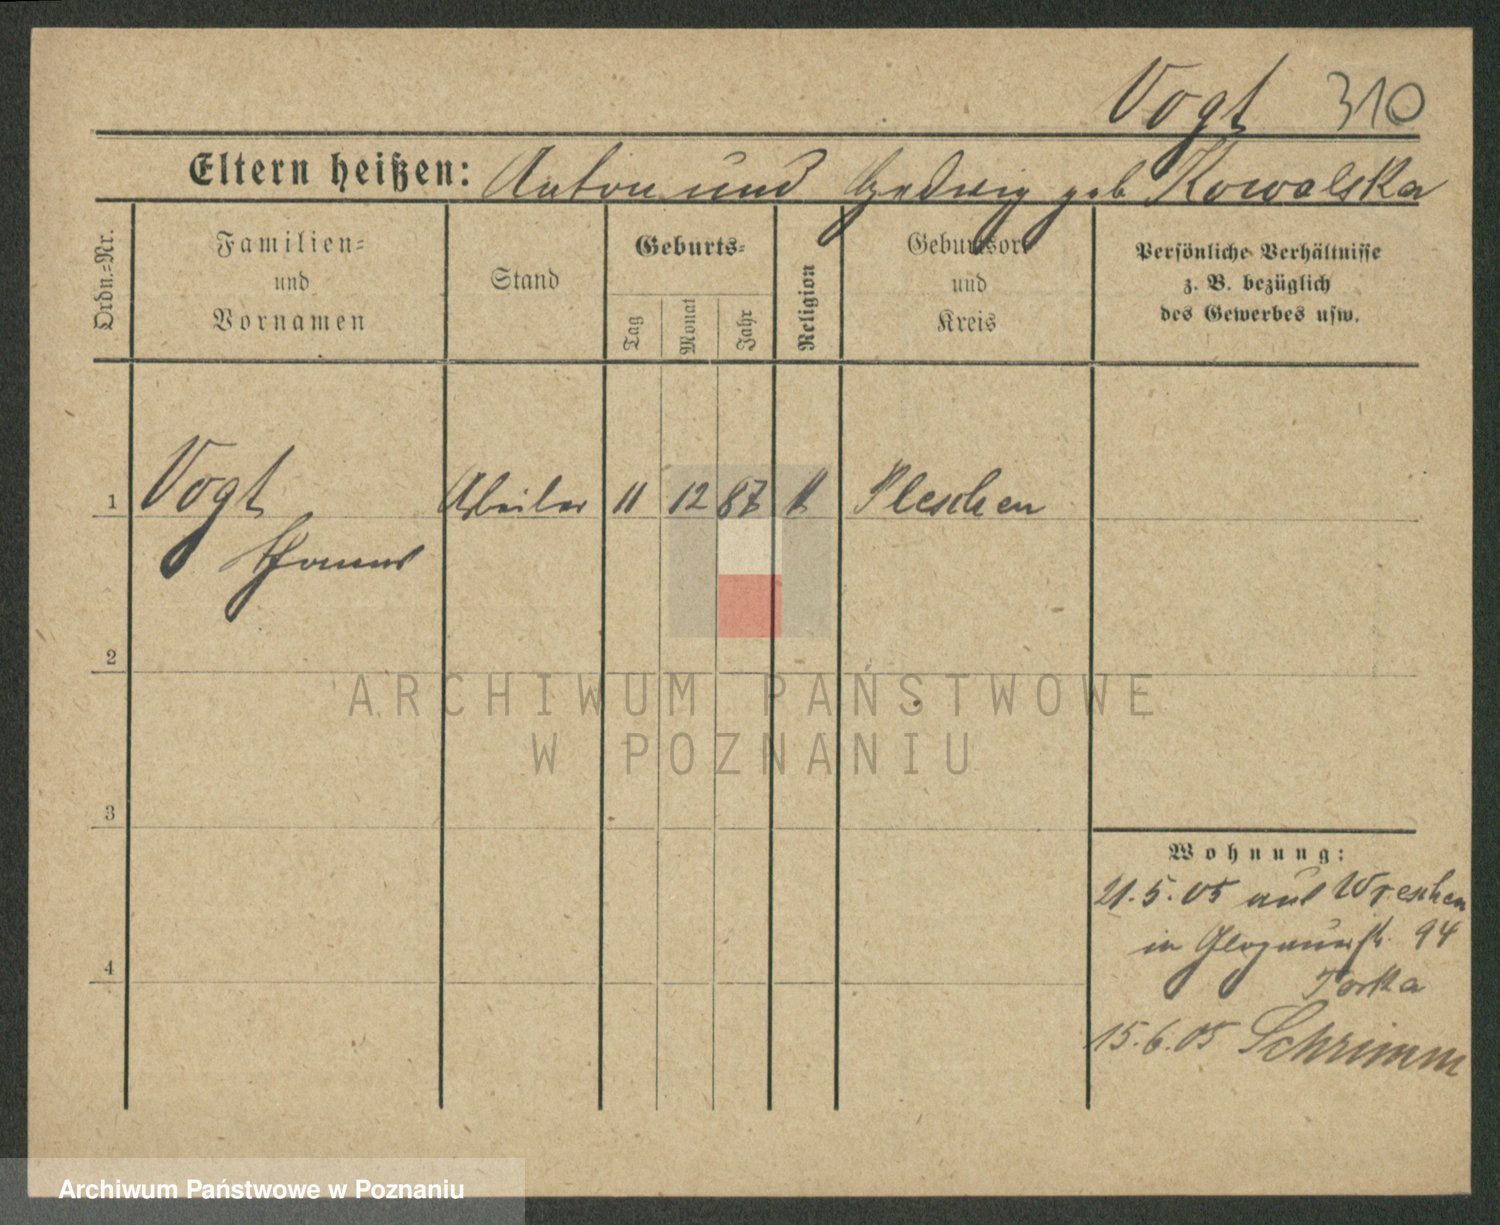 Vogt 310
Eltern heißen: Anton und Hedwig geb Kowalska
Ordn.=Nr.
Familien=
und
Vornamen
Stand
Geburts=
Tag
Monat
Jahr
Religion
Geburtsort
und
Kreis
Persönliche Verhältnisse
z. B. bezüglich
des Gewerbes usw.
1 Vogt Arbeiter 11 12 87 k Pleschen
Thomas
2
ARCHIWUM PAŃSTWOWE
W POZNANIU
3
Wohnung:
21.5.05 aus Wreschen
in Glogauerstr. 94
Torka
4
15.6.05 Schrimm
Archiwum Państwowe w Poznaniu